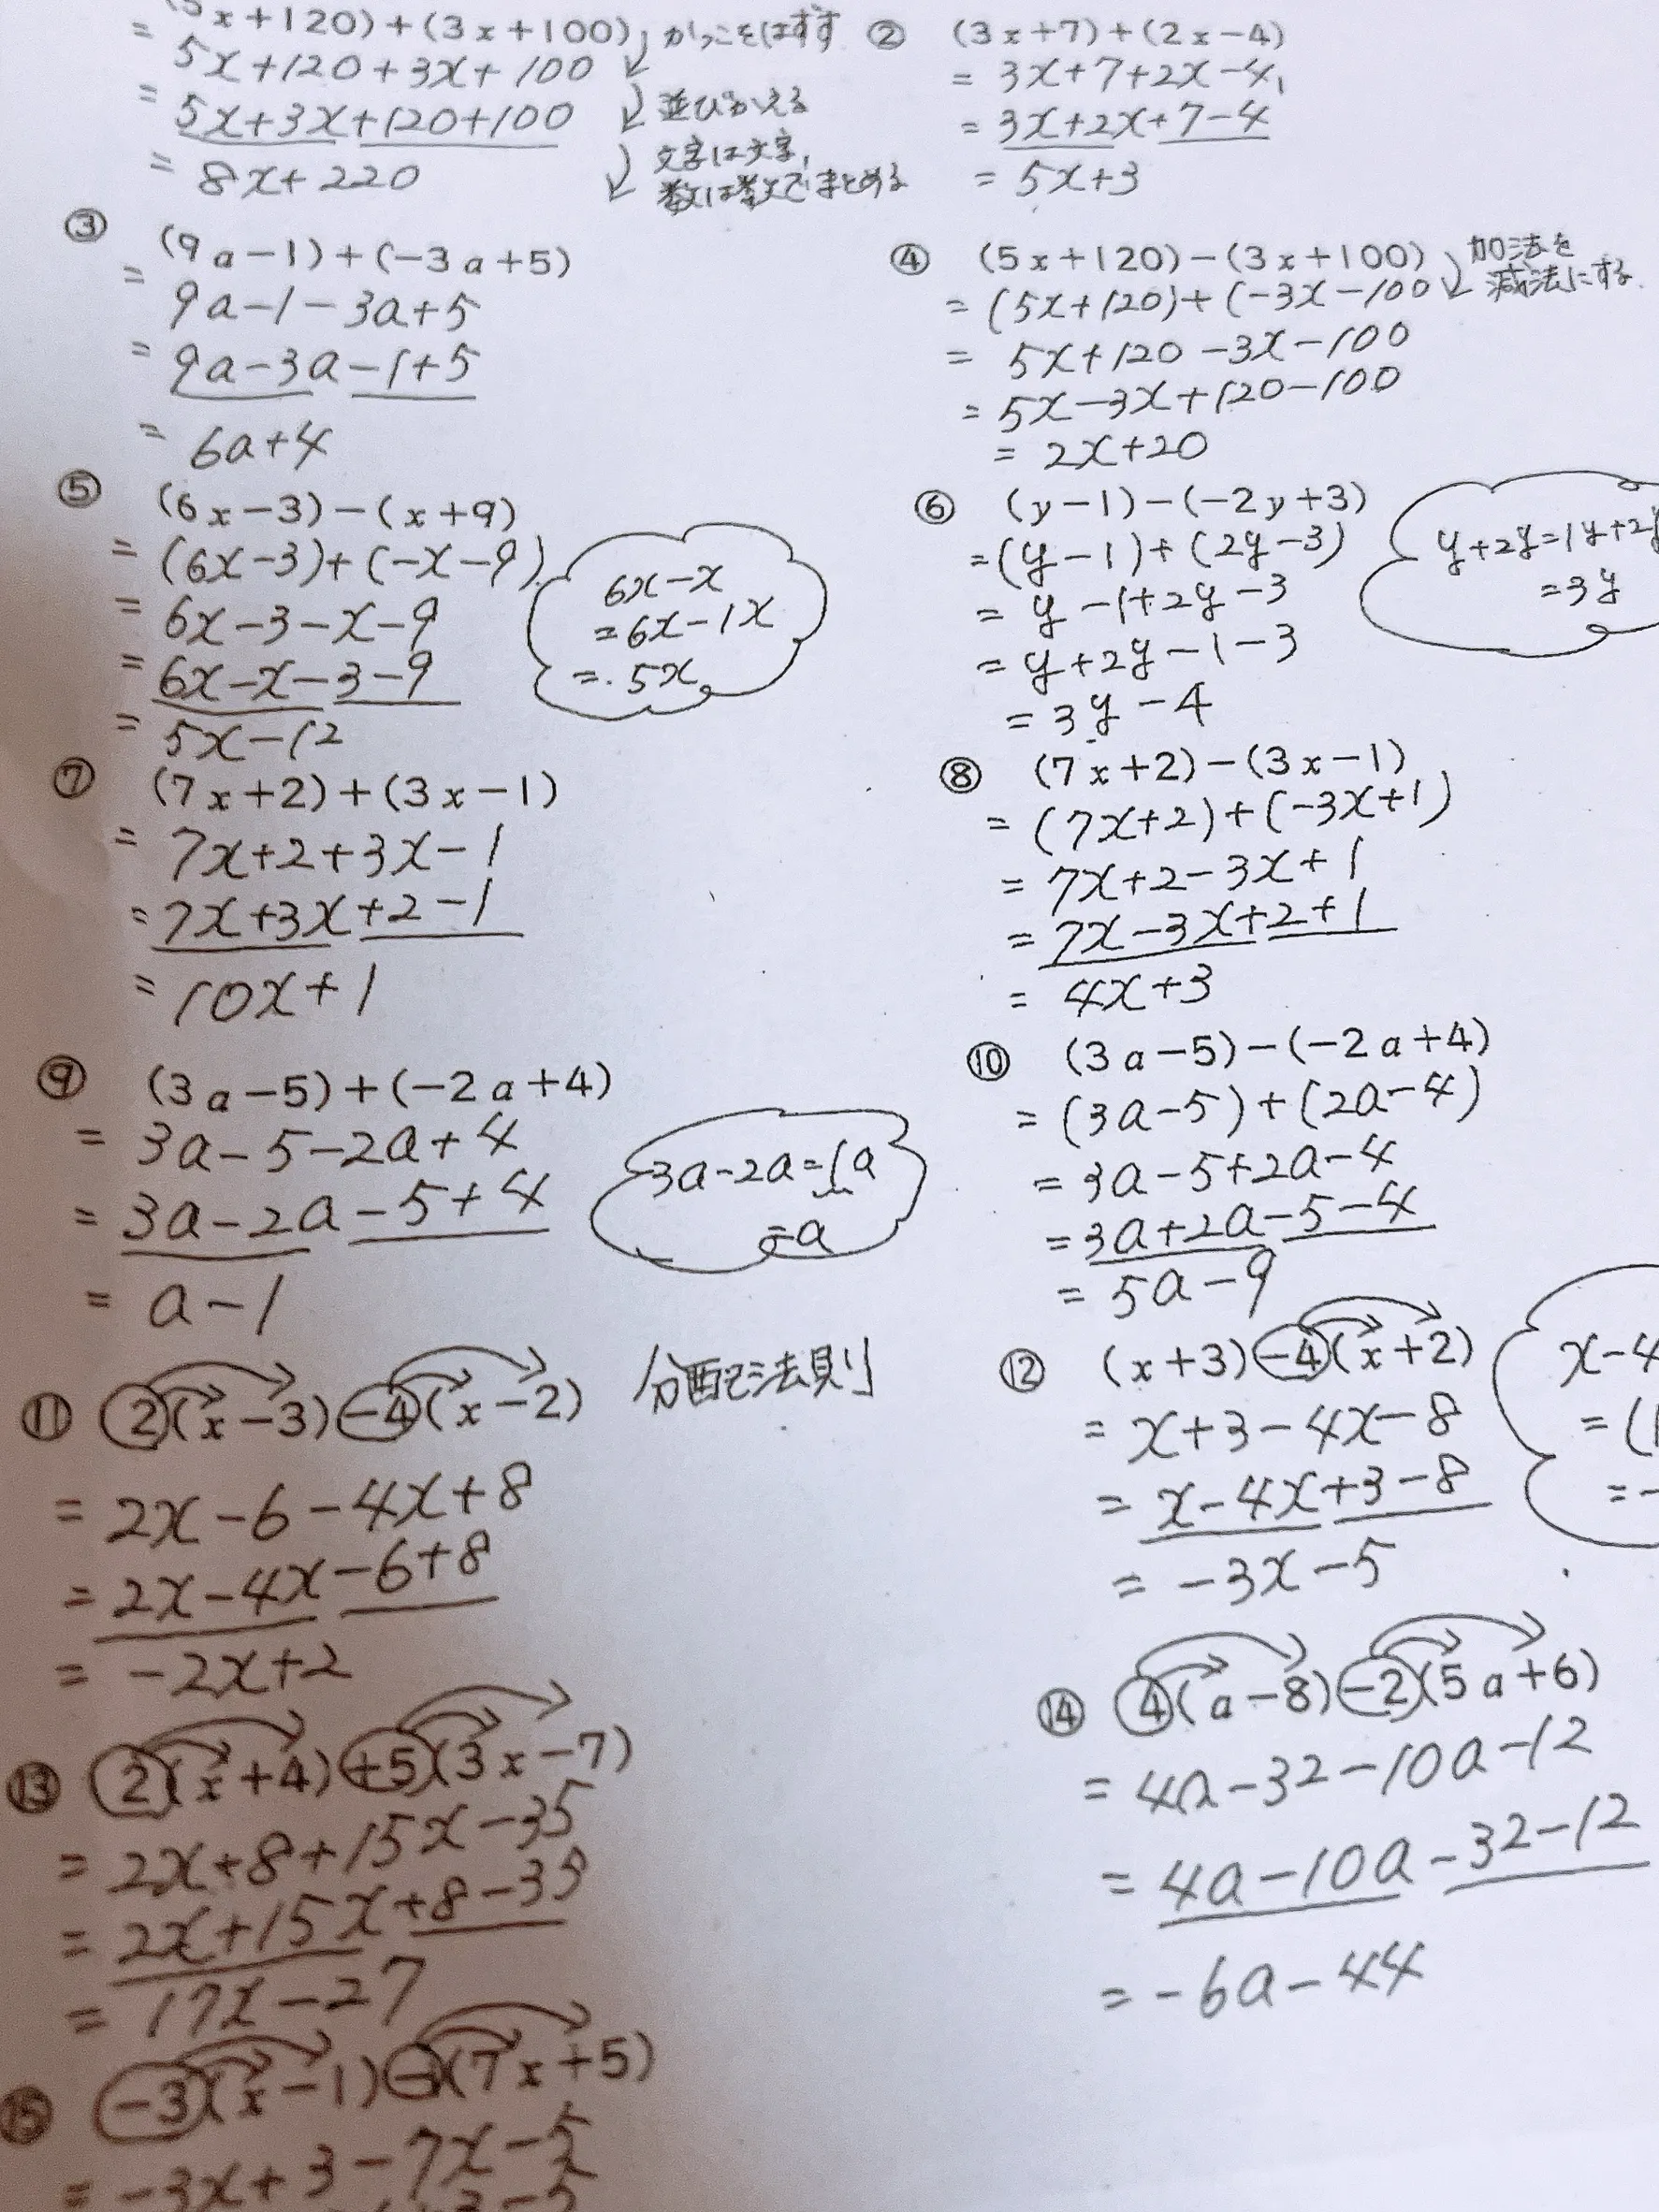 = 5x+120)+(3x+100) かっこをはずす
5x+120+3x+100
= 5x+3x+120+100 並びかえる
= 8x+220 文字は文字,
数は数でまとめる
② (3x+7)+(2x-4)
= 3x+7+2x-4
= 3x+2x+7-4
= 5x+3
③ (9a-1)+(-3a+5)
= 9a-1-3a+5
= 9a-3a-1+5
= 6a+4
④ (5x+120)-(3x+100) 加法を
減法にする
= (5x+120)+(-3x-100
= 5x+120-3x-100
= 5x-3x+120-100
= 2x+20
⑤ (6x-3)-(x+9)
= (6x-3)+(-x-9)
= 6x-3-x-9
= 6x-x-3-9
= 5x-12
6x-x
=6x-1x
=5x
⑥ (y-1)-(-2y+3)
=(y-1)+(2y-3)
= y-1+2y-3
= y+2y-1-3
= 3y-4
y+2y=1y+2y
=3y
⑦ (7x+2)+(3x-1)
= 7x+2+3x-1
= 7x+3x+2-1
= 10x+1
⑧ (7x+2)-(3x-1)
= (7x+2)+(-3x+1)
= 7x+2-3x+1
= 7x-3x+2+1
= 4x+3
⑨ (3a-5)+(-2a+4)
= 3a-5-2a+4
= 3a-2a-5+4
= a-1
3a-2a=1a
=a
⑩ (3a-5)-(-2a+4)
= (3a-5)+(2a-4)
= 3a-5+2a-4
= 3a+2a-5-4
= 5a-9
⑪ 2(x-3)-4(x-2) 分配法則
= 2x-6-4x+8
= 2x-4x-6+8
= -2x+2
⑫ (x+3)-4(x+2)
= x+3-4x-8
= x-4x+3-8
= -3x-5
x-4
=(1
=-
⑬ 2(x+4)+5(3x-7)
= 2x+8+15x-35
= 2x+15x+8-35
= 17x-27
⑭ 4(a-8)-2(5a+6)
= 4a-32-10a-12
= 4a-10a-32-12
= -6a-44
⑮ -3(x-1)-(7x+5)
= -3x+3-7x-5